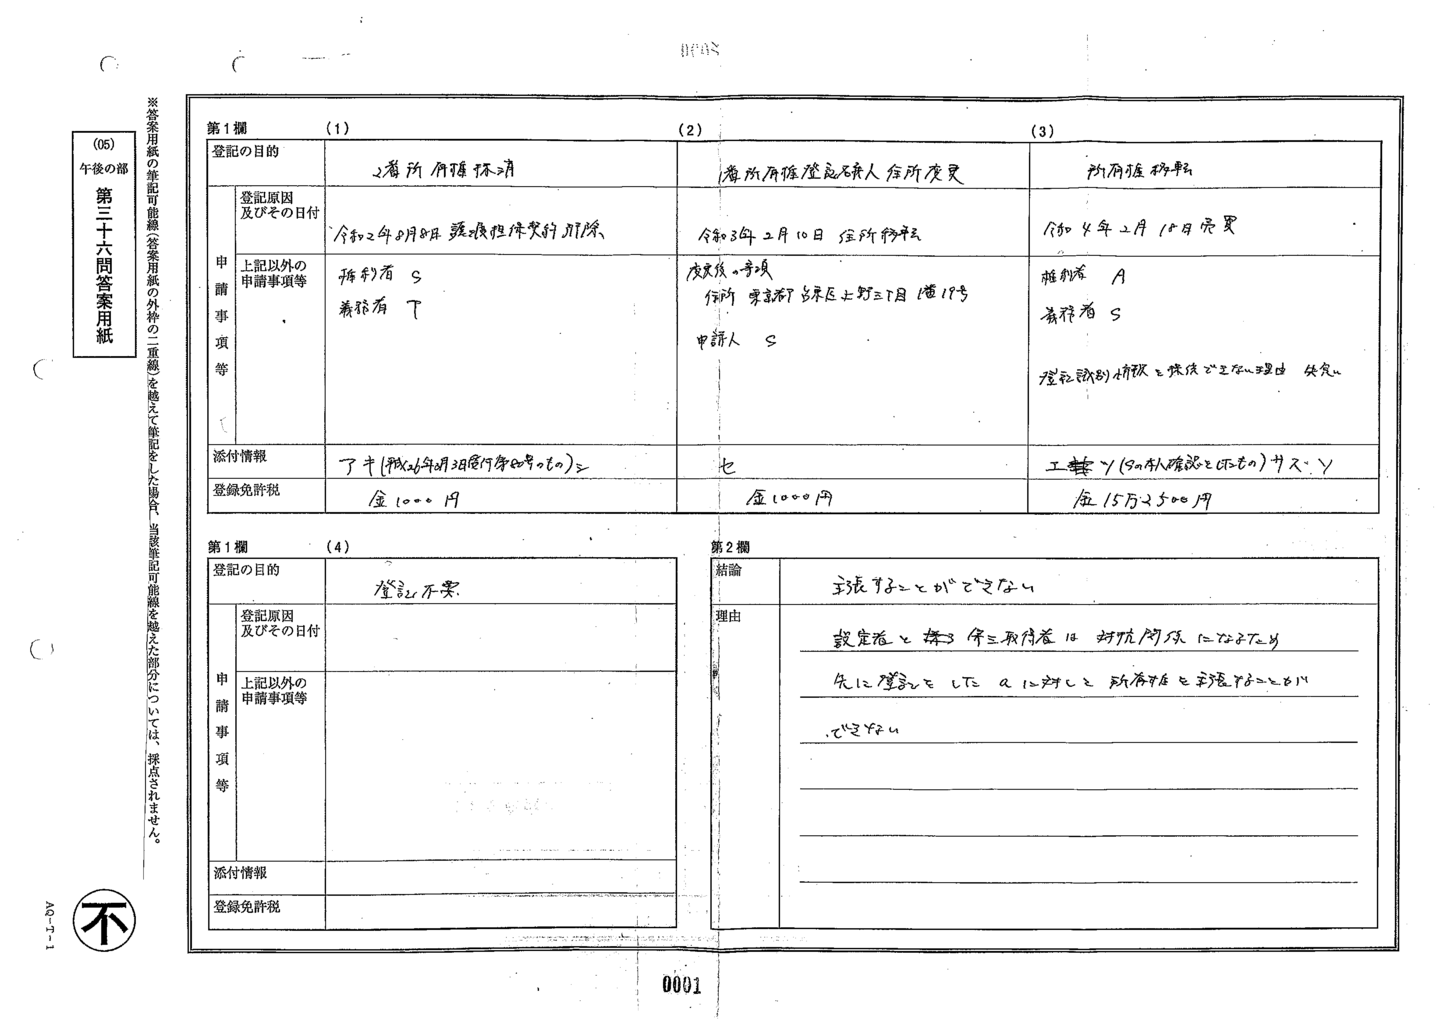 0008
(05)
午後の部
第三十六問答案用紙
※答案用紙の筆記可能線(答案用紙の外枠の二重線)を越えて筆記をした場合、当該筆記可能線を越えた部分については、採点されません。
第1欄 (1)
(2)
(3)
登記の目的
2番所有権抹消
1番所有権登記名義人住所変更
所有権移転
申請事項等
登記原因
及びその日付
令和2年8月8日 譲渡担保契約解除
令和3年2月10日 住所移転
令和4年2月18日売買
上記以外の
申請事項等
権利者 S
義務者 T
変更後の事項
住所 東京都台東区上野三丁目1番19号
申請人 S
権利者 A
義務者 S
登記識別情報を提供できない理由 失念
添付情報
アキ(平成26年8月3日受付第80号のもの)シ
セ
エ ツ(Sの本人確認をしたもの)サスソ
登録免許税
金1000円
金1000円
金15万2500円
第1欄 (4)
登記の目的
登記不要
申請事項等
登記原因
及びその日付
上記以外の
申請事項等
添付情報
登録免許税
第2欄
結論
主張することができない
理由
設定者と 第三取得者は対抗関係になるため
先に登記をしたaに対して所有権を主張することが
できない
不
AQ-T-1
0001